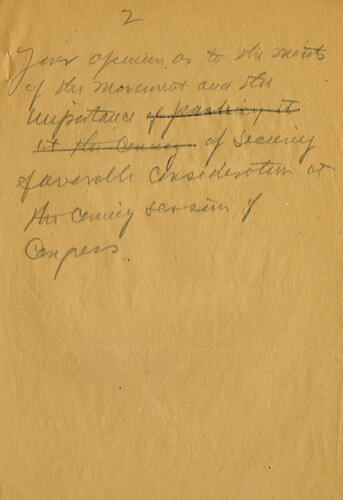 2
Your opinion as to the merits
of the movement and the
importance of pushing it
at the coming of securing
favorable consideration at
the coming session of
Congress.